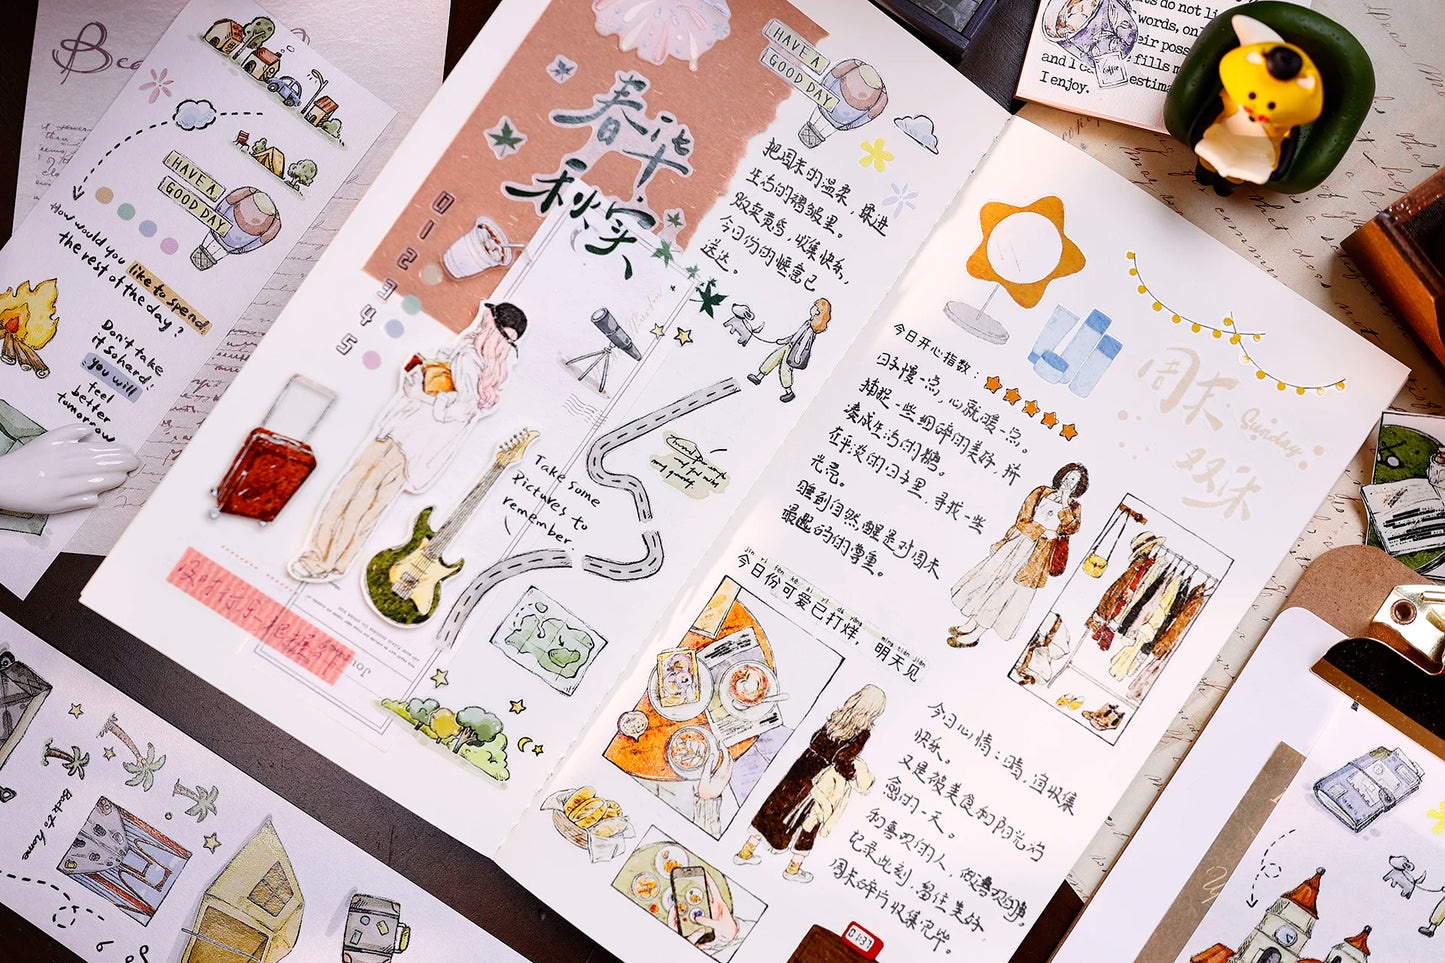 HAVE A
GOOD DAY
How would you
like to spend
the rest of the day?
Don't take
it so hard!
you will
feel
better
tomorrow
春华
秋实
0
1
2
3
4
5
HAVE A
GOOD DAY
把周末的温柔，藏进
生活的褶皱里。
贩卖黄昏，收集快乐，
今日份的惬意已
送达。
Take some
Pictures to
remember.
今日开心指数：
日子慢一点，心就暖一点。
捕捉一些细碎的美好，拼
凑成生活的糖。
在平淡的日子里，寻找一些
光亮。
睡到自然醒是对周末
最起码的尊重。
周末
Sunday
双休
今日份可爱已打烊，明天见
今日心情：晴，宜收集
快乐。
又是被美食和阳光治
愈的一天。
和喜欢的人，做喜欢的事，
记录此刻，留住美好，
周末碎片收集完毕。
01:37
do not
words, only
their
and I can fills
I enjoy.
coffee
Back to home